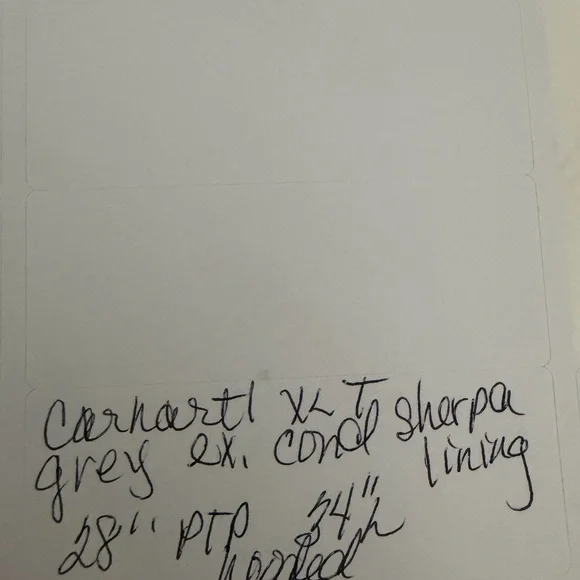 Carhartt XL T sherpa
grey ex. cond lining
28" PTP 34" h
hooded